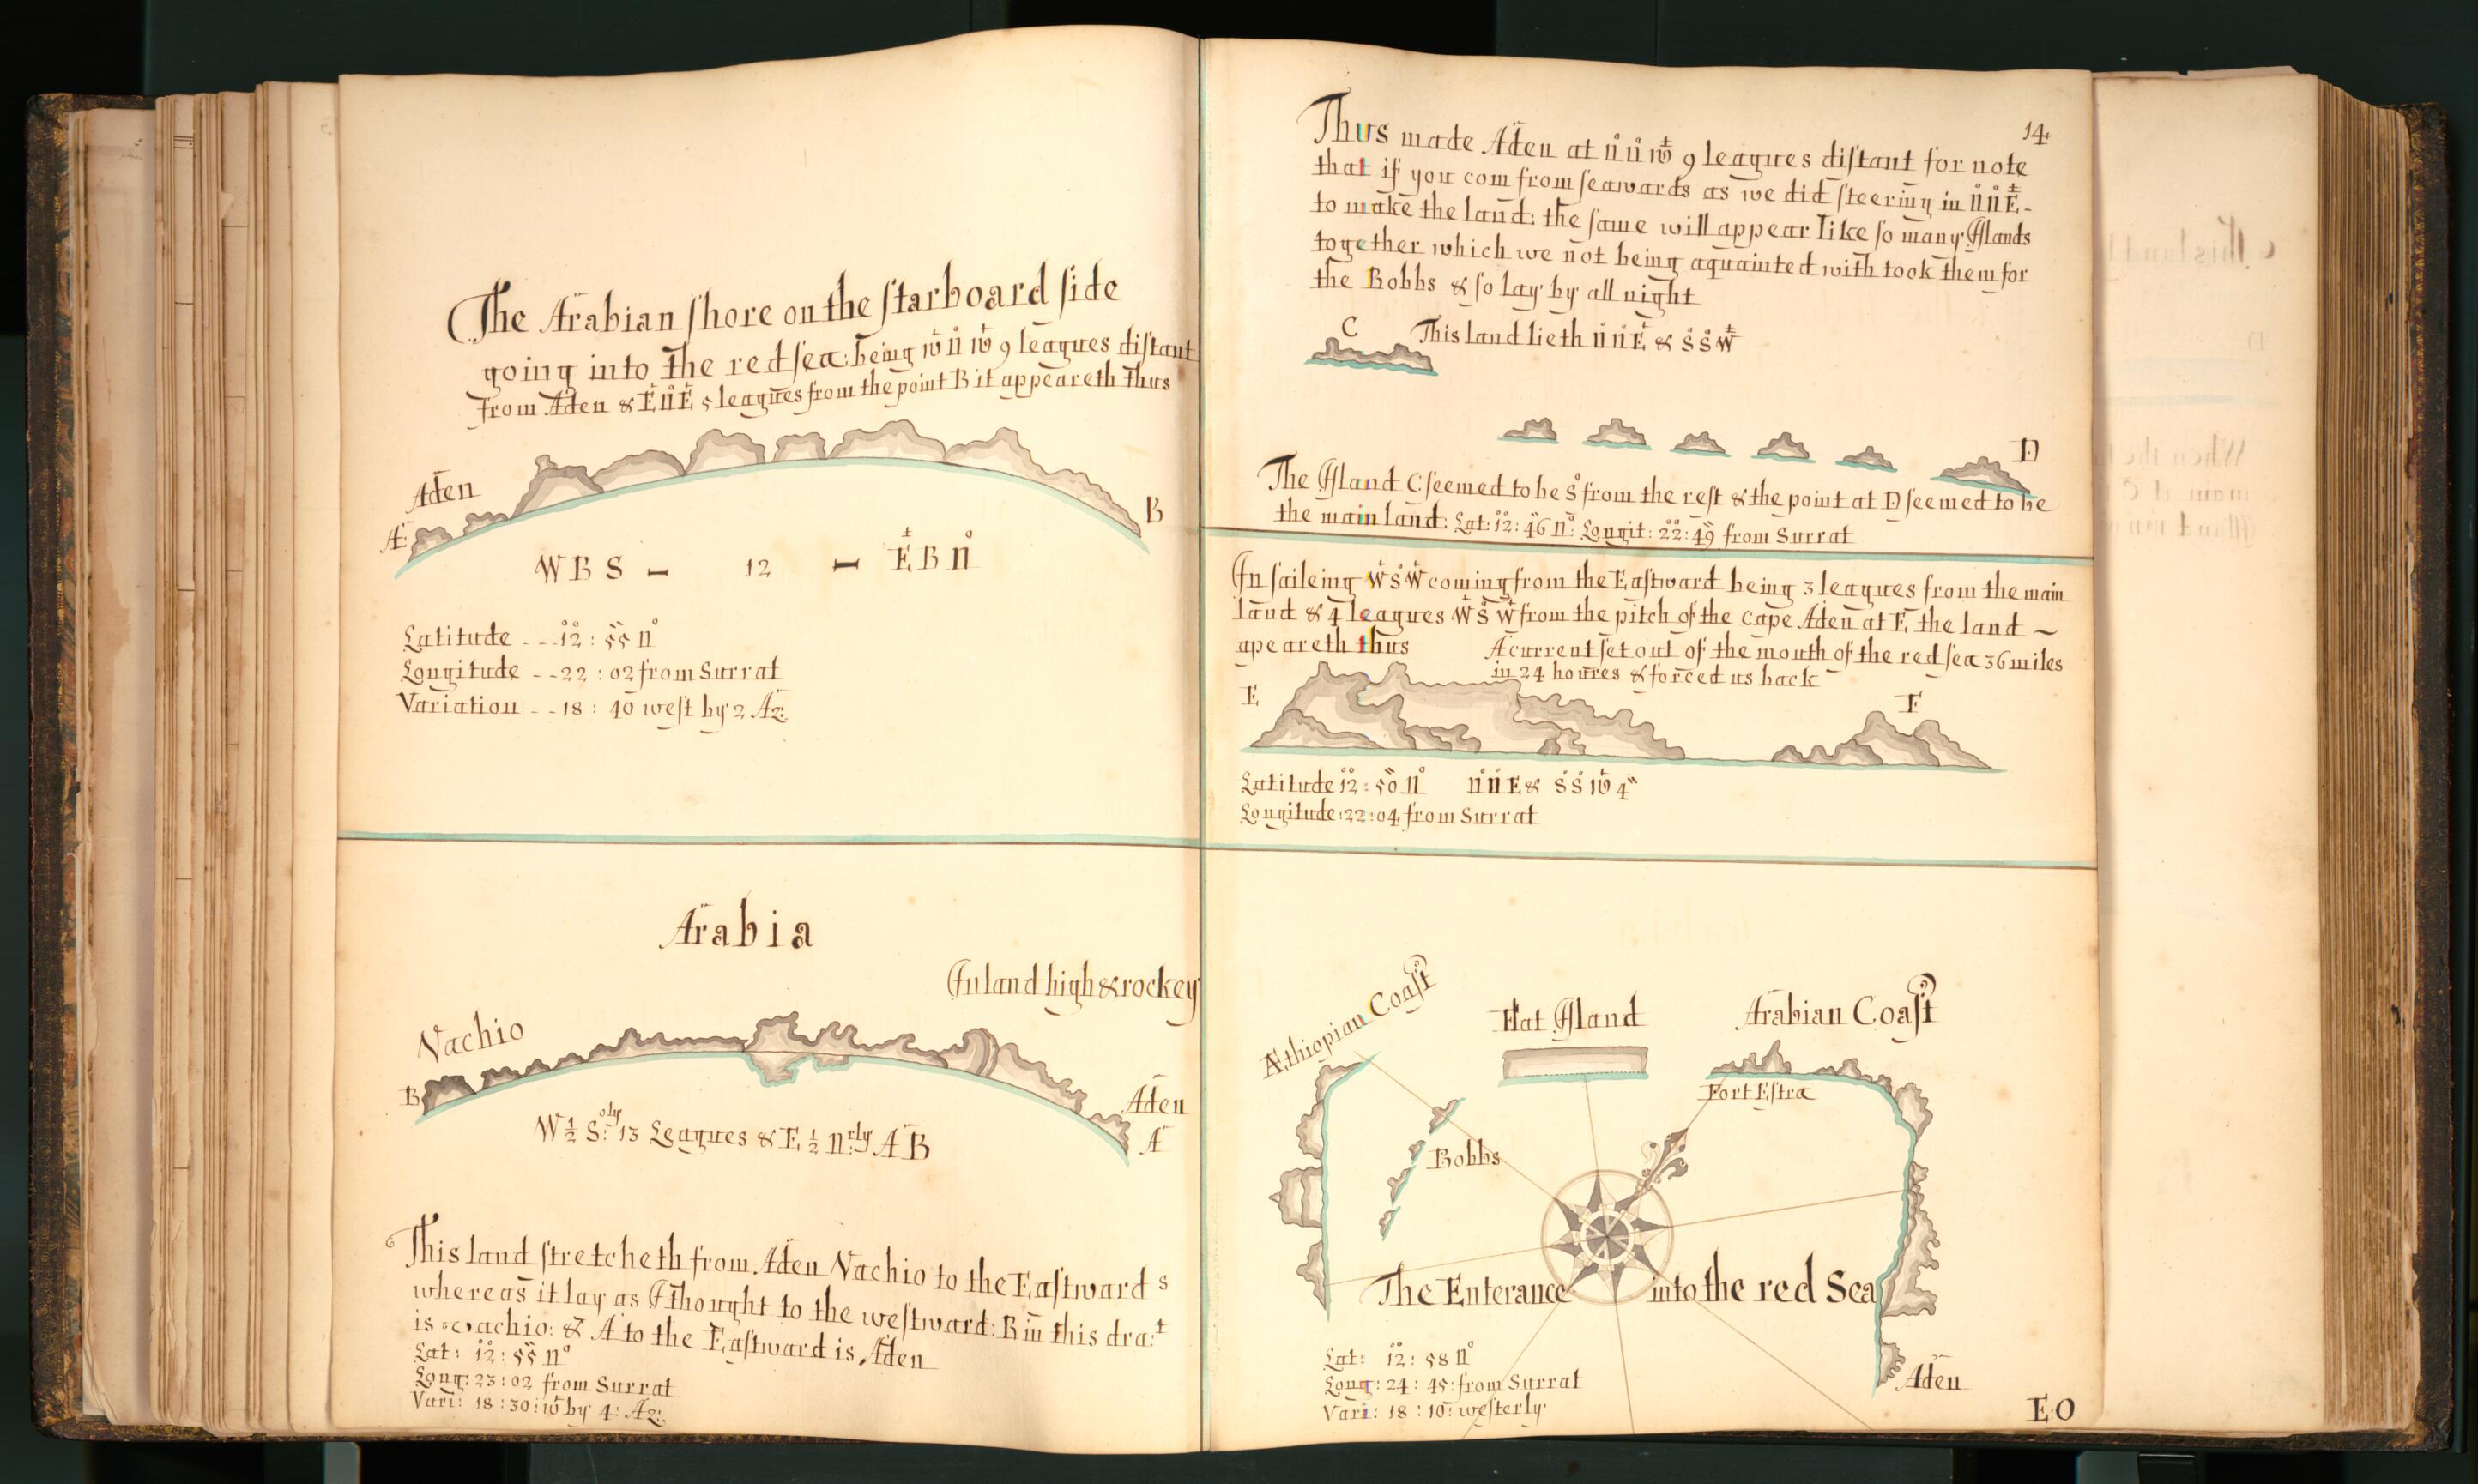 The Arabian shore on the starboard side
going into the red sea: being W N W 9 leagues distant
from Aden & E N E 5 leagues from the point B it appeareth thus
Aden
A:
B
W B S - 12 - E B N
Latitude - - - 12 : 55 N
Longitude - - 22 : 02 from Surrat
Variation - - 18 : 40 west by 2 Az:
Arabia
Inland high & rockey
Nachio
B
Aden
A
W ½ S:oly 13 Leagues & E ½ N:rly A B
This land stretcheth from Aden Nachio to the Eastward s
whereas it lay as I thought to the westward: B in this dra:t
is achio: & A to the Eastward is Aden
Lat: 12 : 55 N
Long: 23 : 02 from Surrat
Vari: 18 : 30 : W by 4: Az:
14
Thus made Aden at N N W 9 leagues distant for note
that if you com from seawards as we did steering in N N E -
to make the land: the same will appear like so many Islands
together which we not being aquainted with took them for
the Bobbs & so lay by all night
C
This land lieth N N E & S S W
D
The Island C seemed to be S from the rest & the point at D seemed to be
the main land: Lat: 12 : 46 N: Longit: 22 : 49 from Surrat
In saileing W S W coming from the Eastward being 3 leagues from the main
land & 4 leagues W S W from the pitch of the cape Aden at E the land ~
apeareth thus
A current set out of the mouth of the red sea 36 miles
in 24 houres & forced us back
E
F
Latitude 12 : 50 N N N E & S S W 4
Longitude: 22 : 04 from Surrat
Æthiopian Coast
Flat Island
Arabian Coast
Fort Estra
Bobbs
The Enterance into the red Sea
Lat: 12 : 58 N
Long: 24 : 45: from Surrat
Vari: 18 : 10: westerly
Aden
E:O